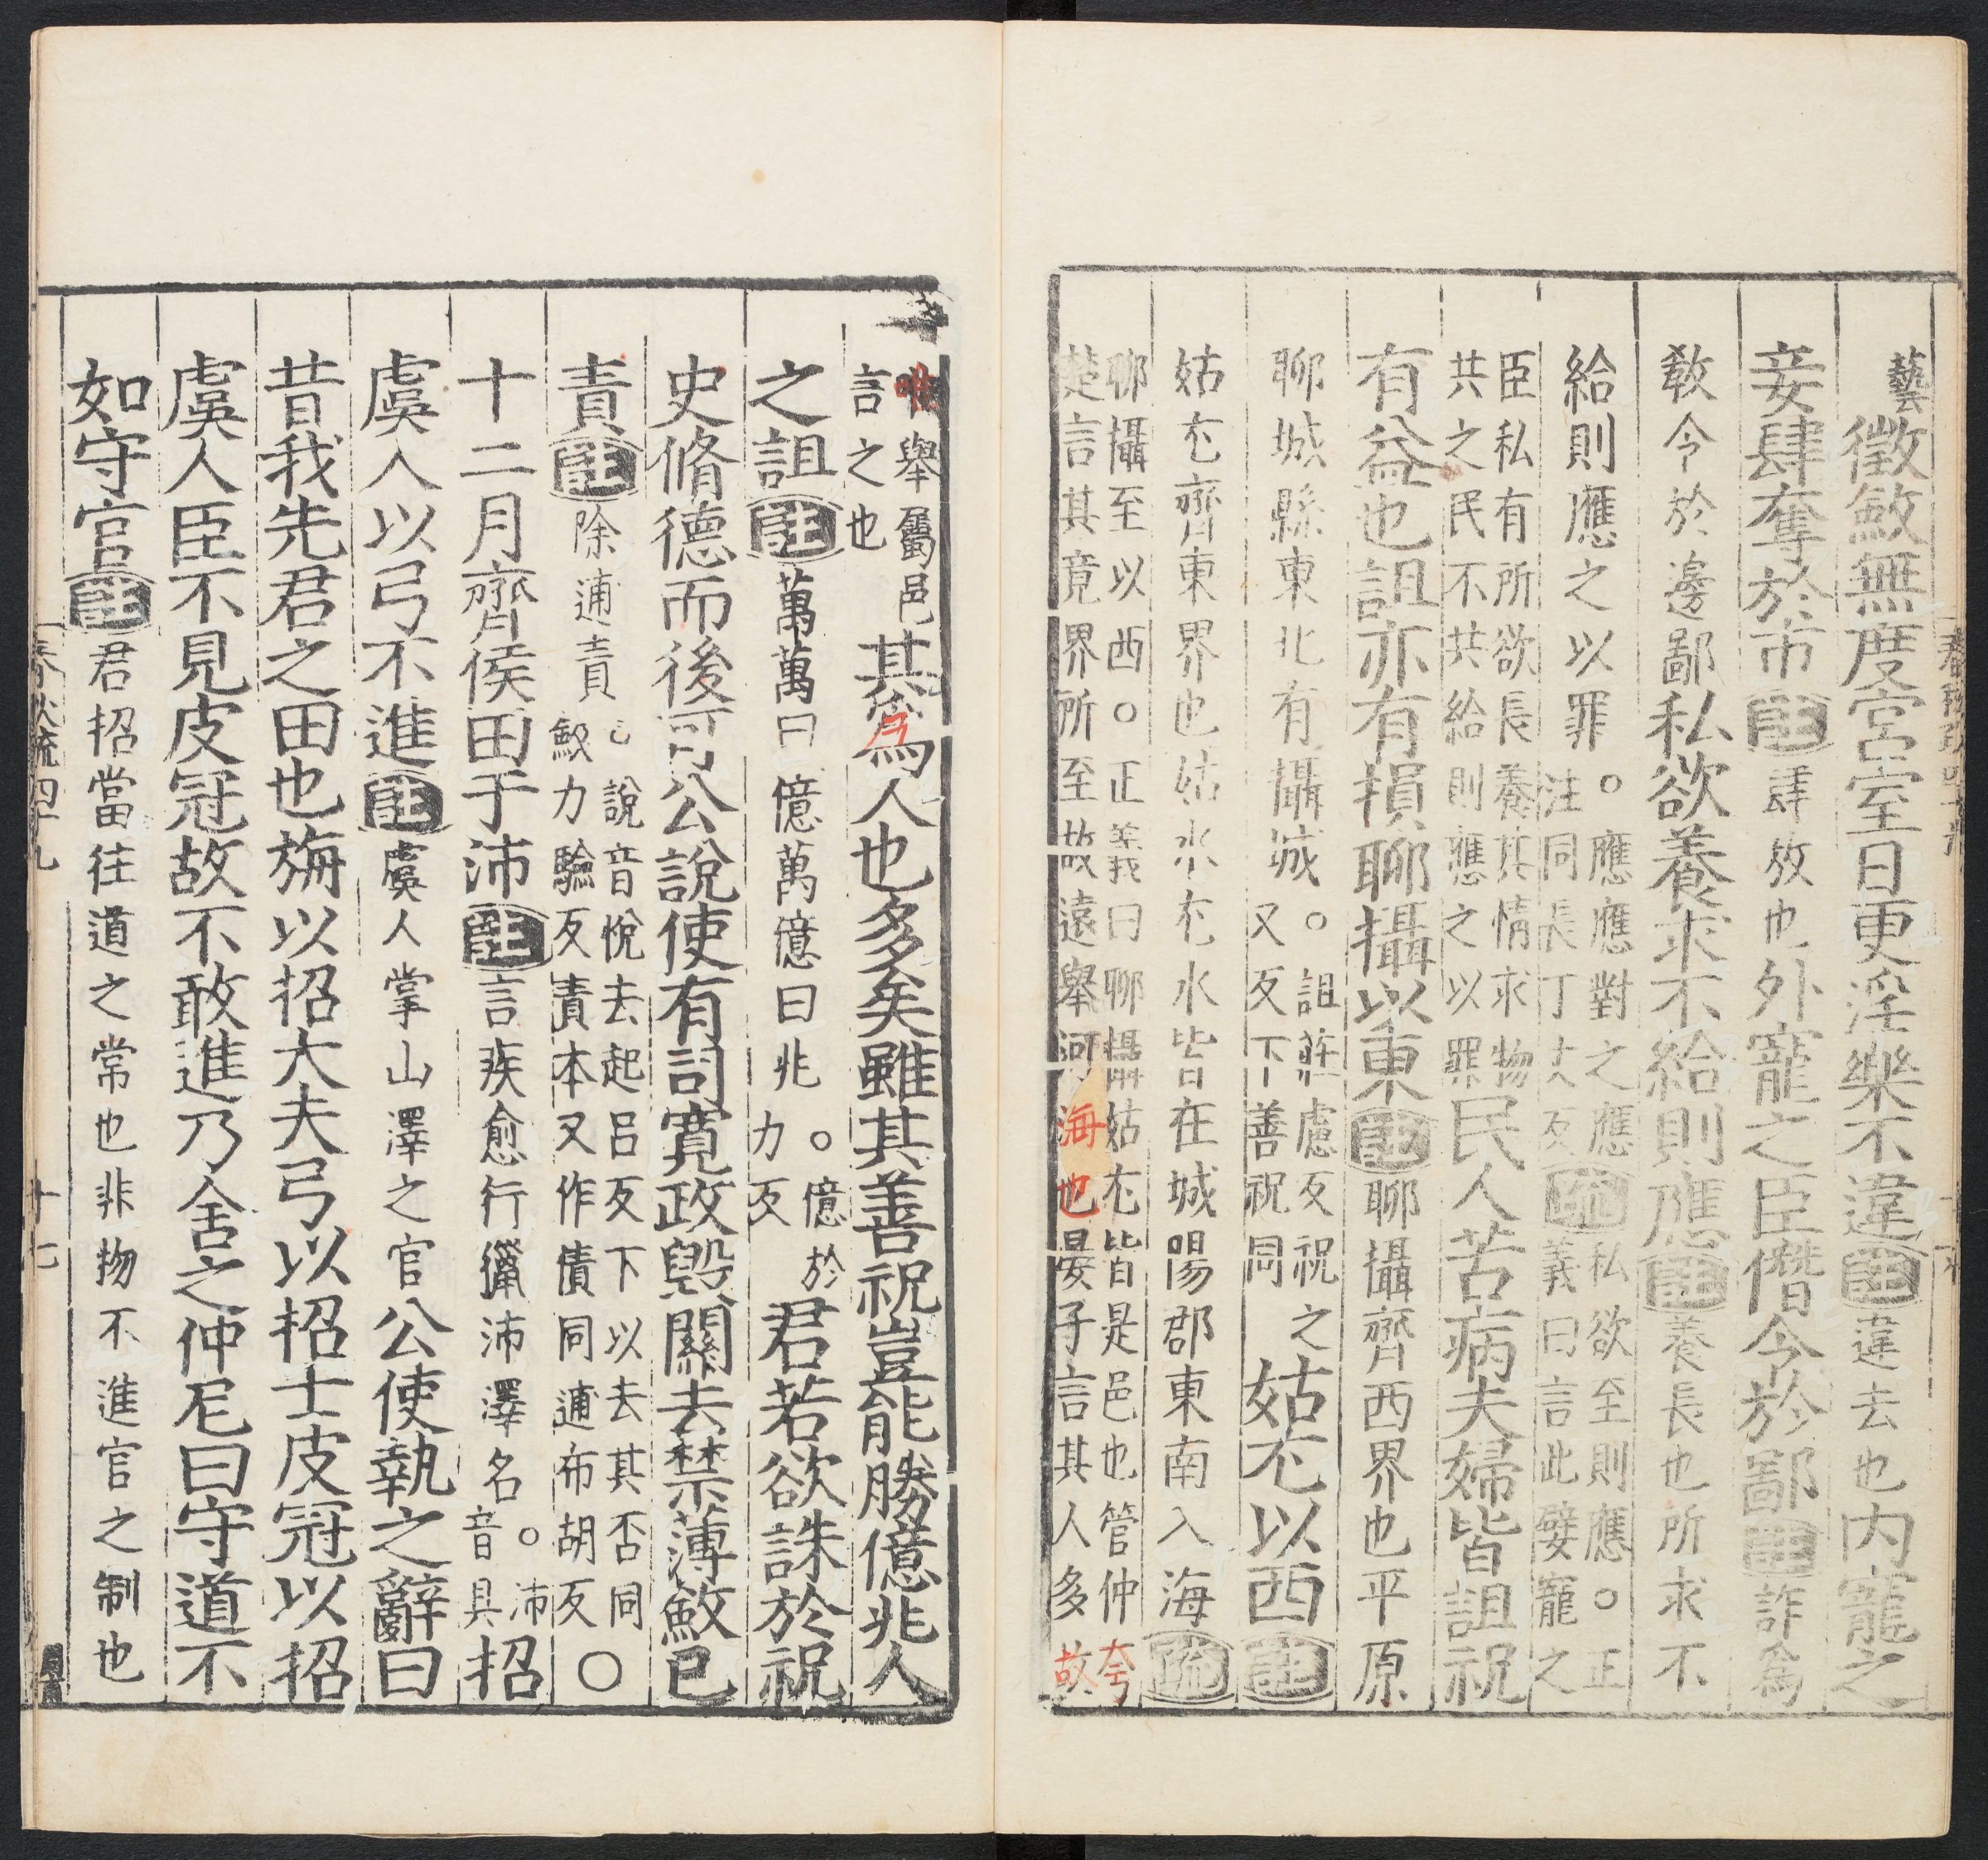 藝徵斂無度宮室日更淫樂不違註違去也內寵之
妾肆奪於市註肆放也外寵之臣僭令於鄙註詐爲
教令於邊鄙私欲養求不給則應註養長也所求不
給則應之以罪。應應對之應注同長丁丈反疏私欲至則應。正義曰言此嬖寵之
臣私有所欲長養其情求物共之民不共給則應之以罪民人苦病夫婦皆詛祝
有益也詛亦有損聊攝以東註聊攝齊西界也平原
聊城縣東北有攝城。詛莊慮反祝之又反下善祝同姑尤以西註
姑尤齊東界也姑水尤水皆在城陽郡東南入海疏
聊攝至以西。正義曰聊攝姑尤皆是邑也管仲夸
楚言其竟界所至故遠舉河海也晏子言其人多故
唯舉屬邑言之也其爲人也多矣雖其善祝豈能勝億兆人
之詛註萬萬曰億萬億曰兆。億於力反君若欲誅於祝
史脩德而後可公說使有司寬政毀關去禁薄斂已
責註除逋責。說音悅去起呂反下以去其否同斂力驗反責本又作債同逋布胡反〇
十二月齊侯田于沛註言疾愈行獵沛澤名。沛音貝招
虞人以弓不進註虞人掌山澤之官公使執之辭曰
昔我先君之田也旃以招大夫弓以招士皮冠以招
虞人臣不見皮冠故不敢進乃舍之仲尼曰守道不
如守官註君招當往道之常也非物不進官之制也
春秋疏四十九
十七